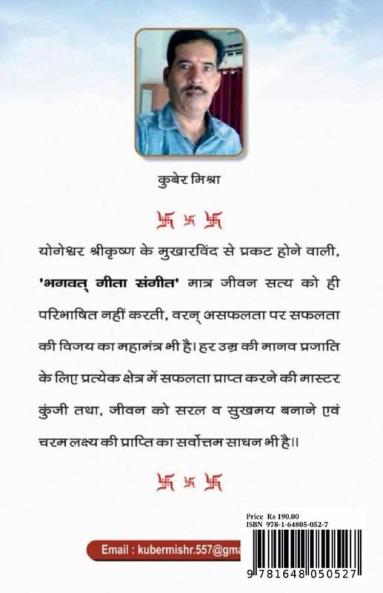 कुबेर मिश्रा
योगेश्वर श्रीकृष्ण के मुखारविंद से प्रकट होने वाली,
'भगवत् गीता संगीत' मात्र जीवन सत्य को ही
परिभाषित नहीं करती, वरन् असफलता पर सफलता
की विजय का महामंत्र भी है। हर उम्र की मानव प्रजाति
के लिए प्रत्येक क्षेत्र में सफलता प्राप्त करने की मास्टर
कुंजी तथा, जीवन को सरल व सुखमय बनाने एवं
चरम लक्ष्य की प्राप्ति का सर्वोत्तम साधन भी है।।
Price Rs 190.00
ISBN 978-1-64805-052-7
Email : kubermishr.557@gma
9 781648 050527